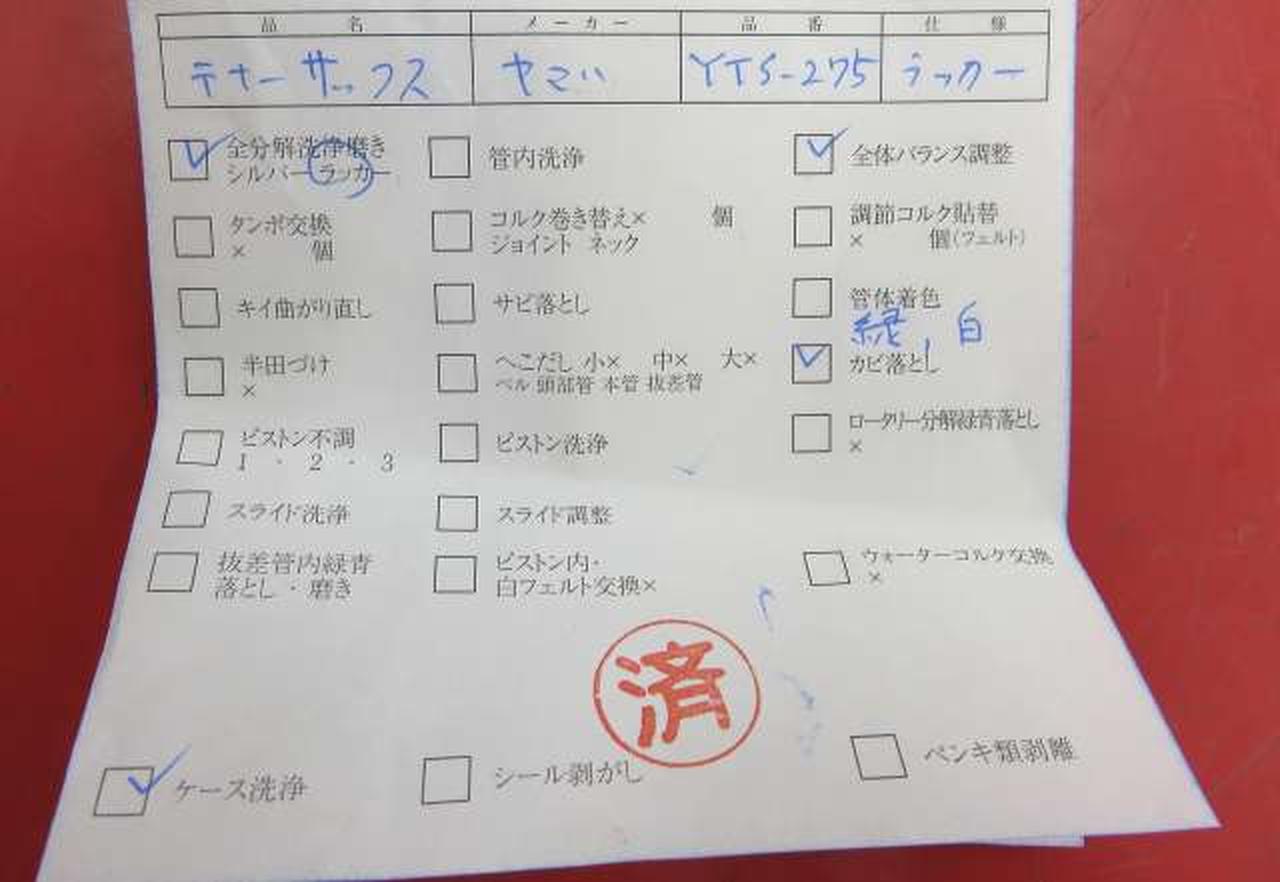 品名 メーカー 品番 仕様
テナーサックス ヤマハ YTS-275 ラッカー
全分解洗浄磨き 管内洗浄 全体バランス調整
シルバー ラッカー
タンポ交換 コルク巻き替え× 個 調節コルク貼替
× 個 ジョイント ネック × 個(フェルト)
キイ曲がり直し サビ落とし 管体着色
緑,白
半田づけ へこだし 小× 中× 大× カビ落とし
× ベル 頭部管 本管 抜差管
ピストン不調 ピストン洗浄 ロータリー分解緑青落とし
1・2・3 ×
スライド洗浄 スライド調整
抜差管内緑青 ピストン内・ ウォーターコルク交換
落とし・磨き 白フェルト交換× ×
済
ケース洗浄 シール剥がし ペンキ類剥離